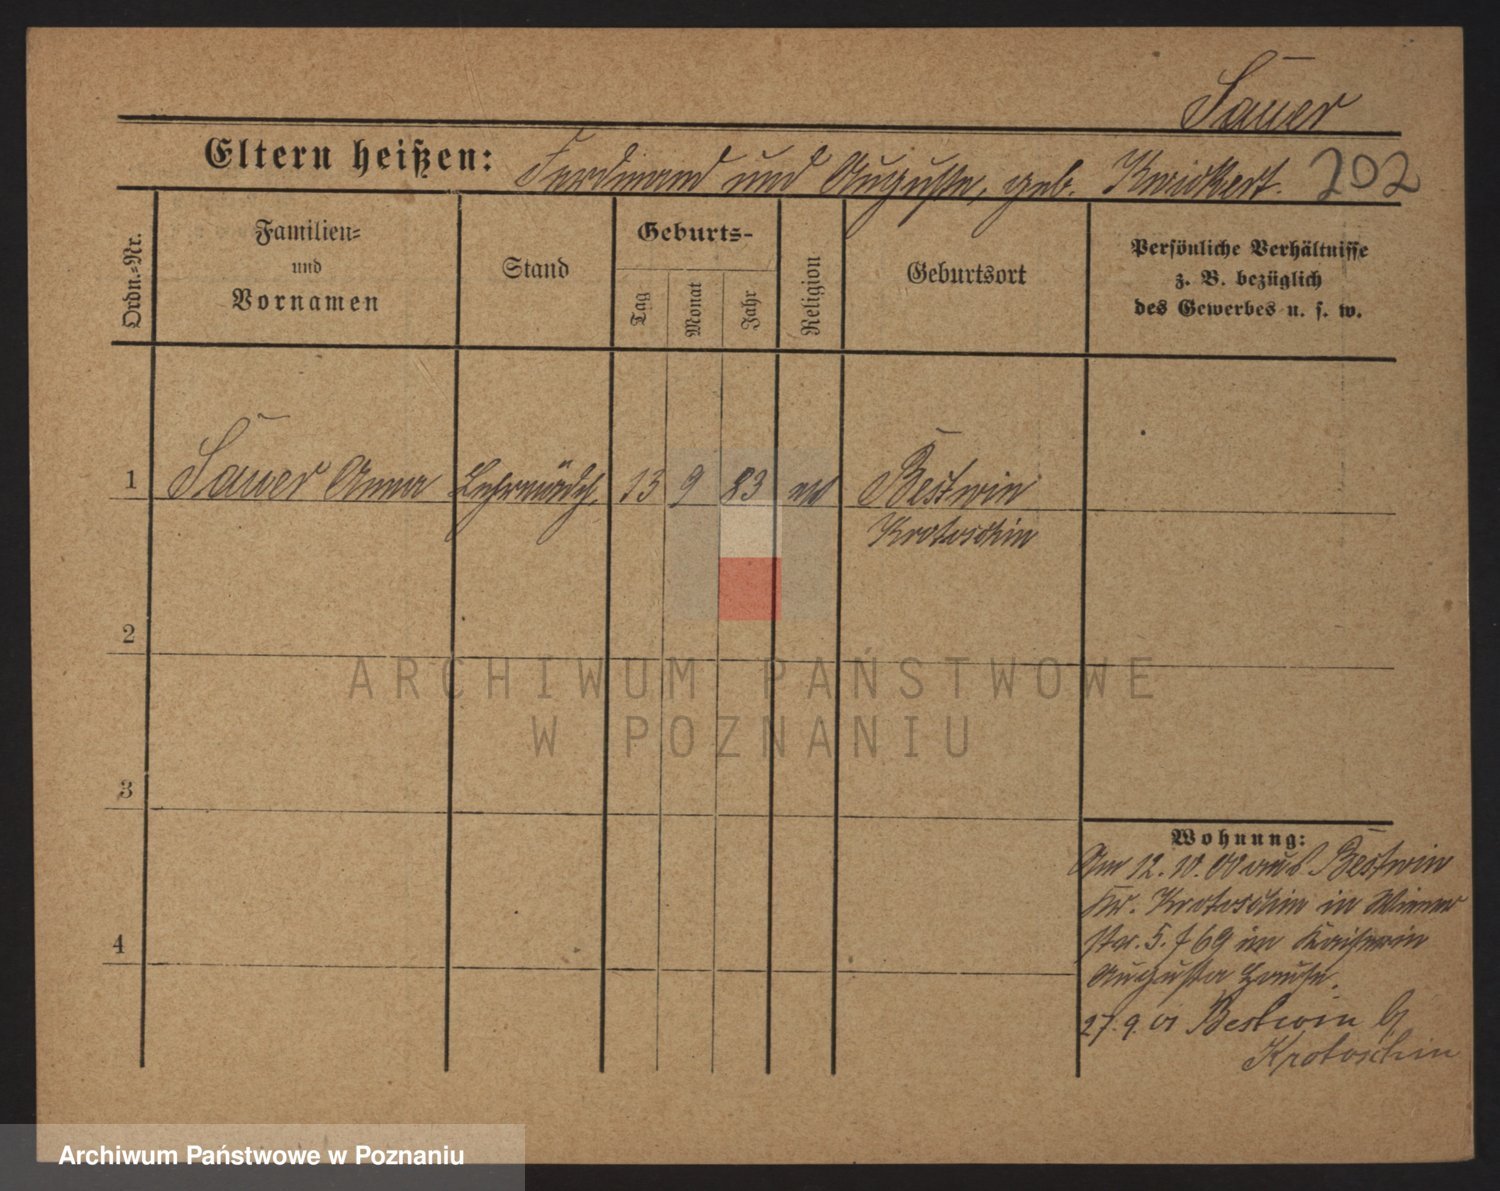 Sauer
Eltern heißen: Ferdinand und Auguste, geb. 202
Ordn.=Nr.
Familien=
und
Vornamen
Stand
Geburts=
Tag
Monat
Jahr
Religion
Geburtsort
Persönliche Verhältnisse
z. B. bezüglich
des Gewerbes u. s. w.
1 Sauer Anna Lehrmädch. 13 9 83 ev Bestwin
Krotoschin
2
3
4
Wohnung:
Am 12. 10. 00 aus Bestwin
Kr. Krotoschin in Wiener
str. 5. 169 im Kaiserin
Augusta Hause.
27. 9. 01 Bestwin
Krotoschin
ARCHIWUM PAŃSTWOWE
W POZNANIU
Archiwum Państwowe w Poznaniu